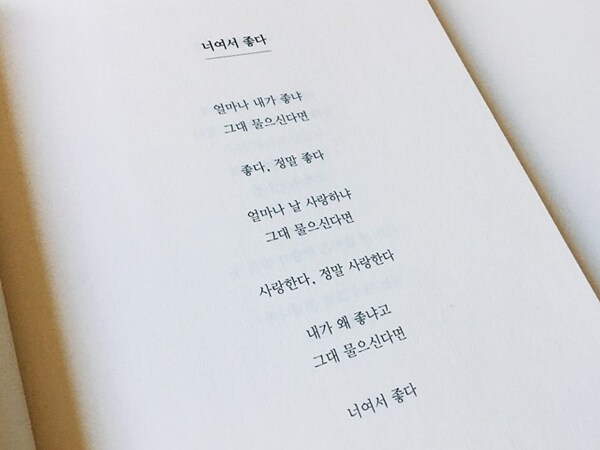 너여서 좋다
얼마나 내가 좋냐
그대 물으신다면
좋다. 정말 좋다
얼마나 날 사랑하냐
그대 물으신다면
사랑한다. 정말 사랑한다
내가 왜 좋냐고
그대 물으신다면
너여서 좋다